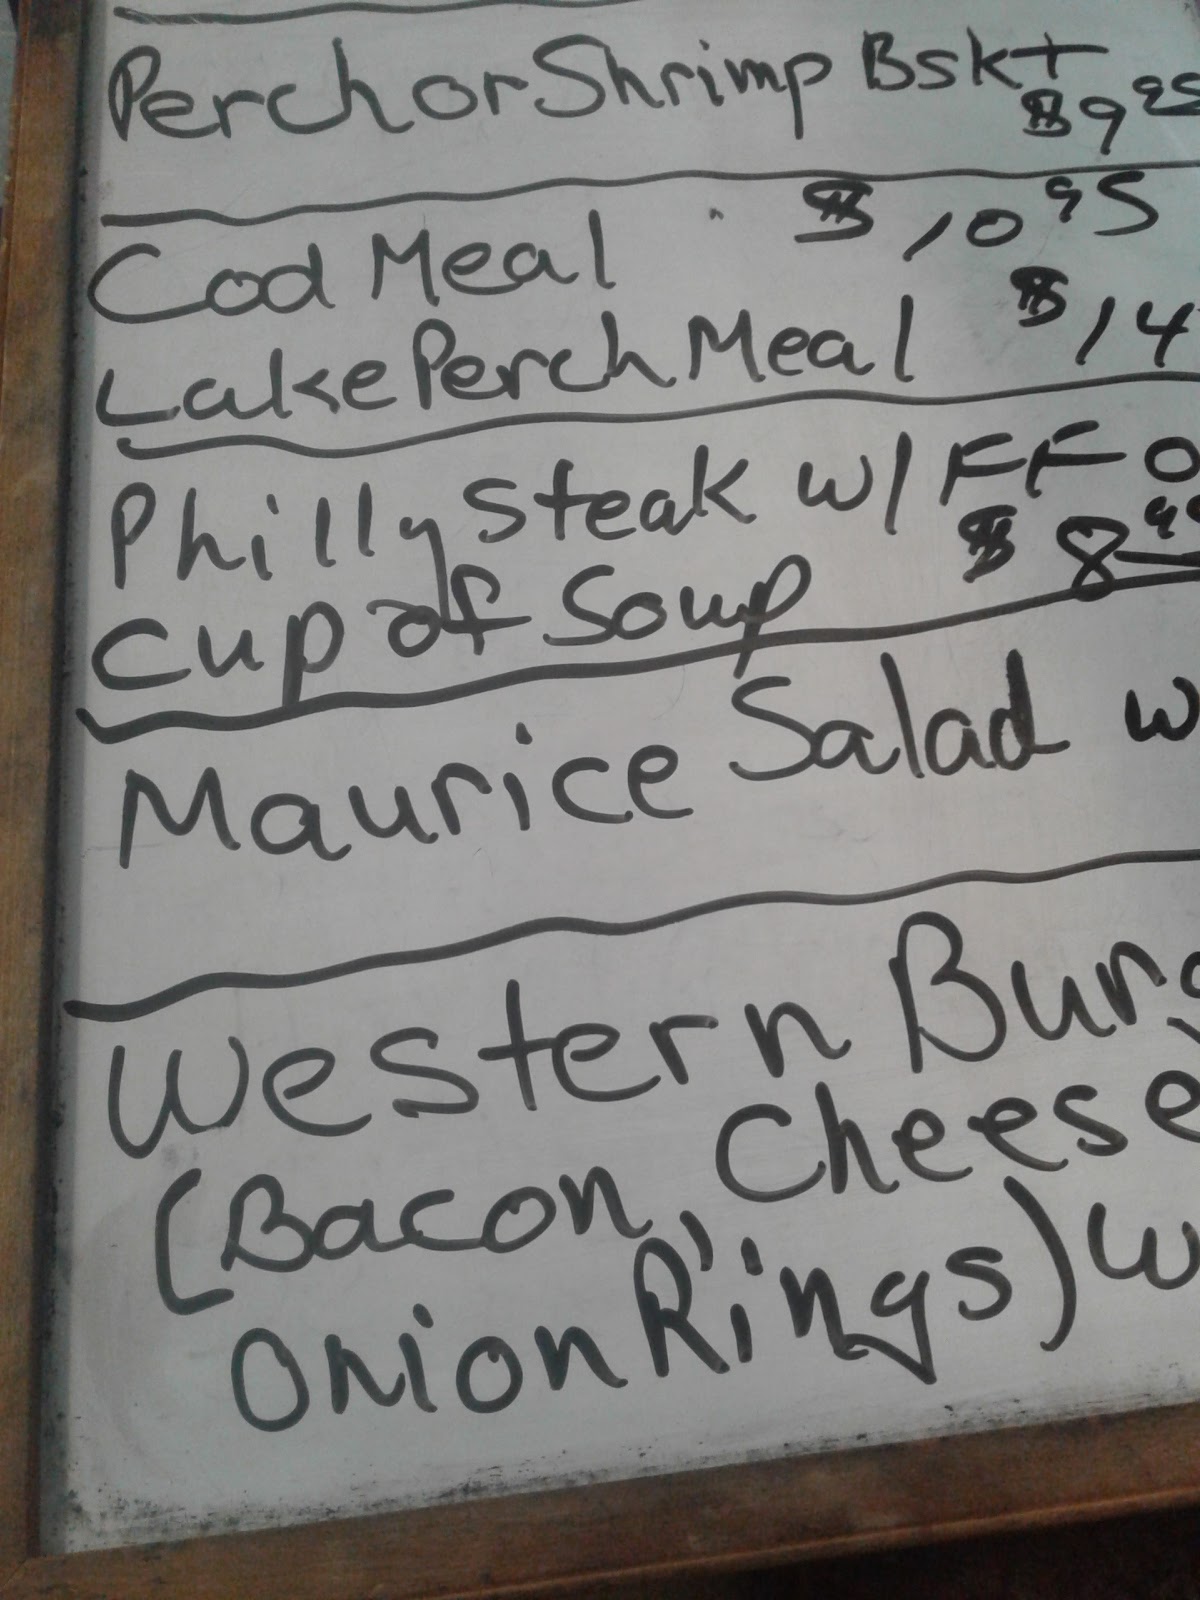 Perch or Shrimp Bskt
$9 95
Cod Meal $10 95
Lake Perch Meal $14
Philly Steak w/ FF O
Cup of Soup $8 99
Maurice Salad w
Western Burg
(Bacon, Cheese
Onion Rings) w